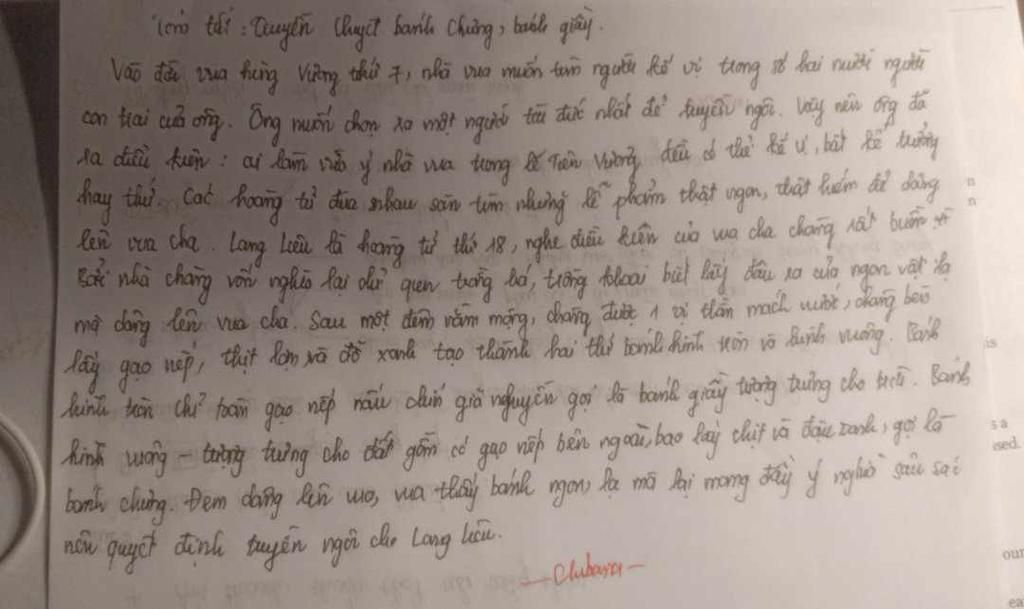 Tóm tắt : Truyền thuyết bánh chưng, bánh giầy.
Vào đời vua hùng Vương thứ 7, nhà vua muốn tìm người kế vị trong số hai mươi người
con trai của ông. Ông muốn chọn ra một người tài đức nhất để truyền ngôi. Vậy nên ông đã
ra điều kiện : ai làm vừa ý nhà vua trong lễ Tiên Vương đều có thể kế vị, bất kể trưởng
hay thứ. Các hoàng tử đua nhau săn tìm những lễ phẩm thật ngon, thật hiếm để dâng
lên vua cha. Lang Liêu là hoàng tử thứ 18, nghe điều kiện của vua cha chàng rất buồn vì
Bởi nhà chàng vốn nghèo lại chỉ quen trồng lúa, trồng khoai biết lấy đâu ra của ngon vật lạ
mà dâng lên vua cha. Sau một đêm nằm mộng, chàng được 1 vị thần mách nước, chàng bèn
lấy gạo nếp, thịt lợn, và đỗ xanh tạo thành hai thứ bánh hình tròn và hình vuông. Bánh
hình tròn chỉ toàn gạo nếp nấu chín giã nguyễn gọi là bánh giầy tượng trưng cho trời. Bánh
hình vuông - tượng trưng cho đất gồm có gạo nếp bên ngoài, bao lấy thịt và đậu xanh, gọi là
bánh chưng. Đem dâng lên vua, vua thấy bánh ngon, lạ mà lại mang đầy ý nghĩa sâu sắc
nên quyết định truyền ngôi cho Lang Liêu.